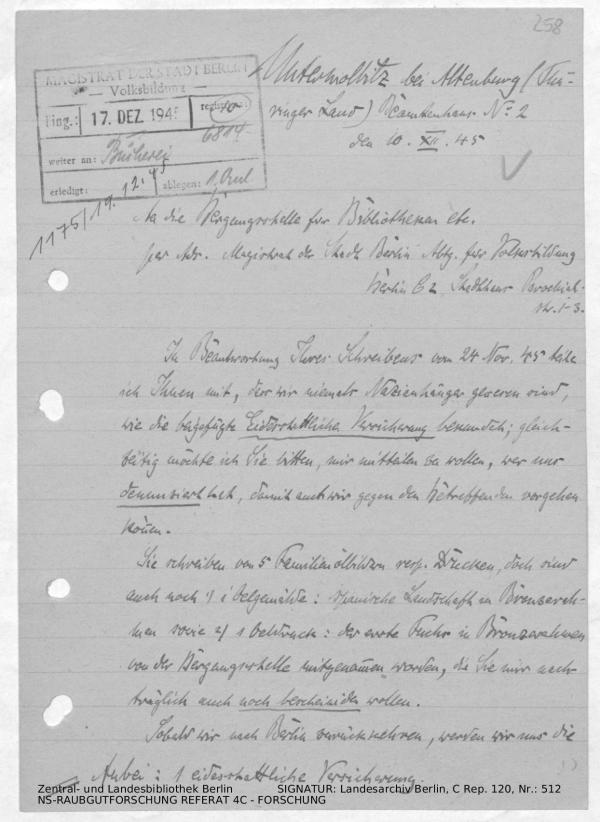 258
MAGISTRAT DER STADT BERLIN
— Volksbildung —
Eing.: 17. DEZ. 1945
6814
weiter an: Bücherei
erledigt: ablegen:
1175/19.12.45
Untermolbitz bei Altenburg (Thü-
ringer Land) Beamtenhaus No 2
den 10. XII. 45
An die Bergungsstelle für Bibliotheken etc.
per Adr. Magistrat der Stadt Berlin Abtg. für Volksbildung
Berlin C 2, Stadthaus Parochial-
str. 1-3.
In Beantwortung Ihres Schreibens vom 24 Nov. 45 teile
ich Ihnen mit, dass wir niemals Nazianhänger gewesen sind,
wie die beigefügte Eidesstattliche Versicherung bekundet; gleich-
zeitig möchte ich Sie bitten, mir mitteilen zu wollen, wer uns
denunziert hat, damit auch wir gegen den Betreffenden vorgehen
können.
Sie schreiben von 5 Familienölbildern resp. Drucken, doch sind
auch noch 1) 1 Oelgemälde: spanische Landschaft in Bronzerah-
men sowie 2) 1 Oeldruck: der erste Fuchs in Bronzerahmen
von der Bergungsstelle mitgenommen worden, die Sie mir nach-
träglich auch noch bescheinigen wollen.
Sobald wir nach Berlin zurückkehren, werden wir uns die
Anbei: 1 eidesstattliche Versicherung.
Zentral- und Landesbibliothek Berlin SIGNATUR: Landesarchiv Berlin, C Rep. 120, Nr.: 512
NS-RAUBGUTFORSCHUNG REFERAT 4C - FORSCHUNG